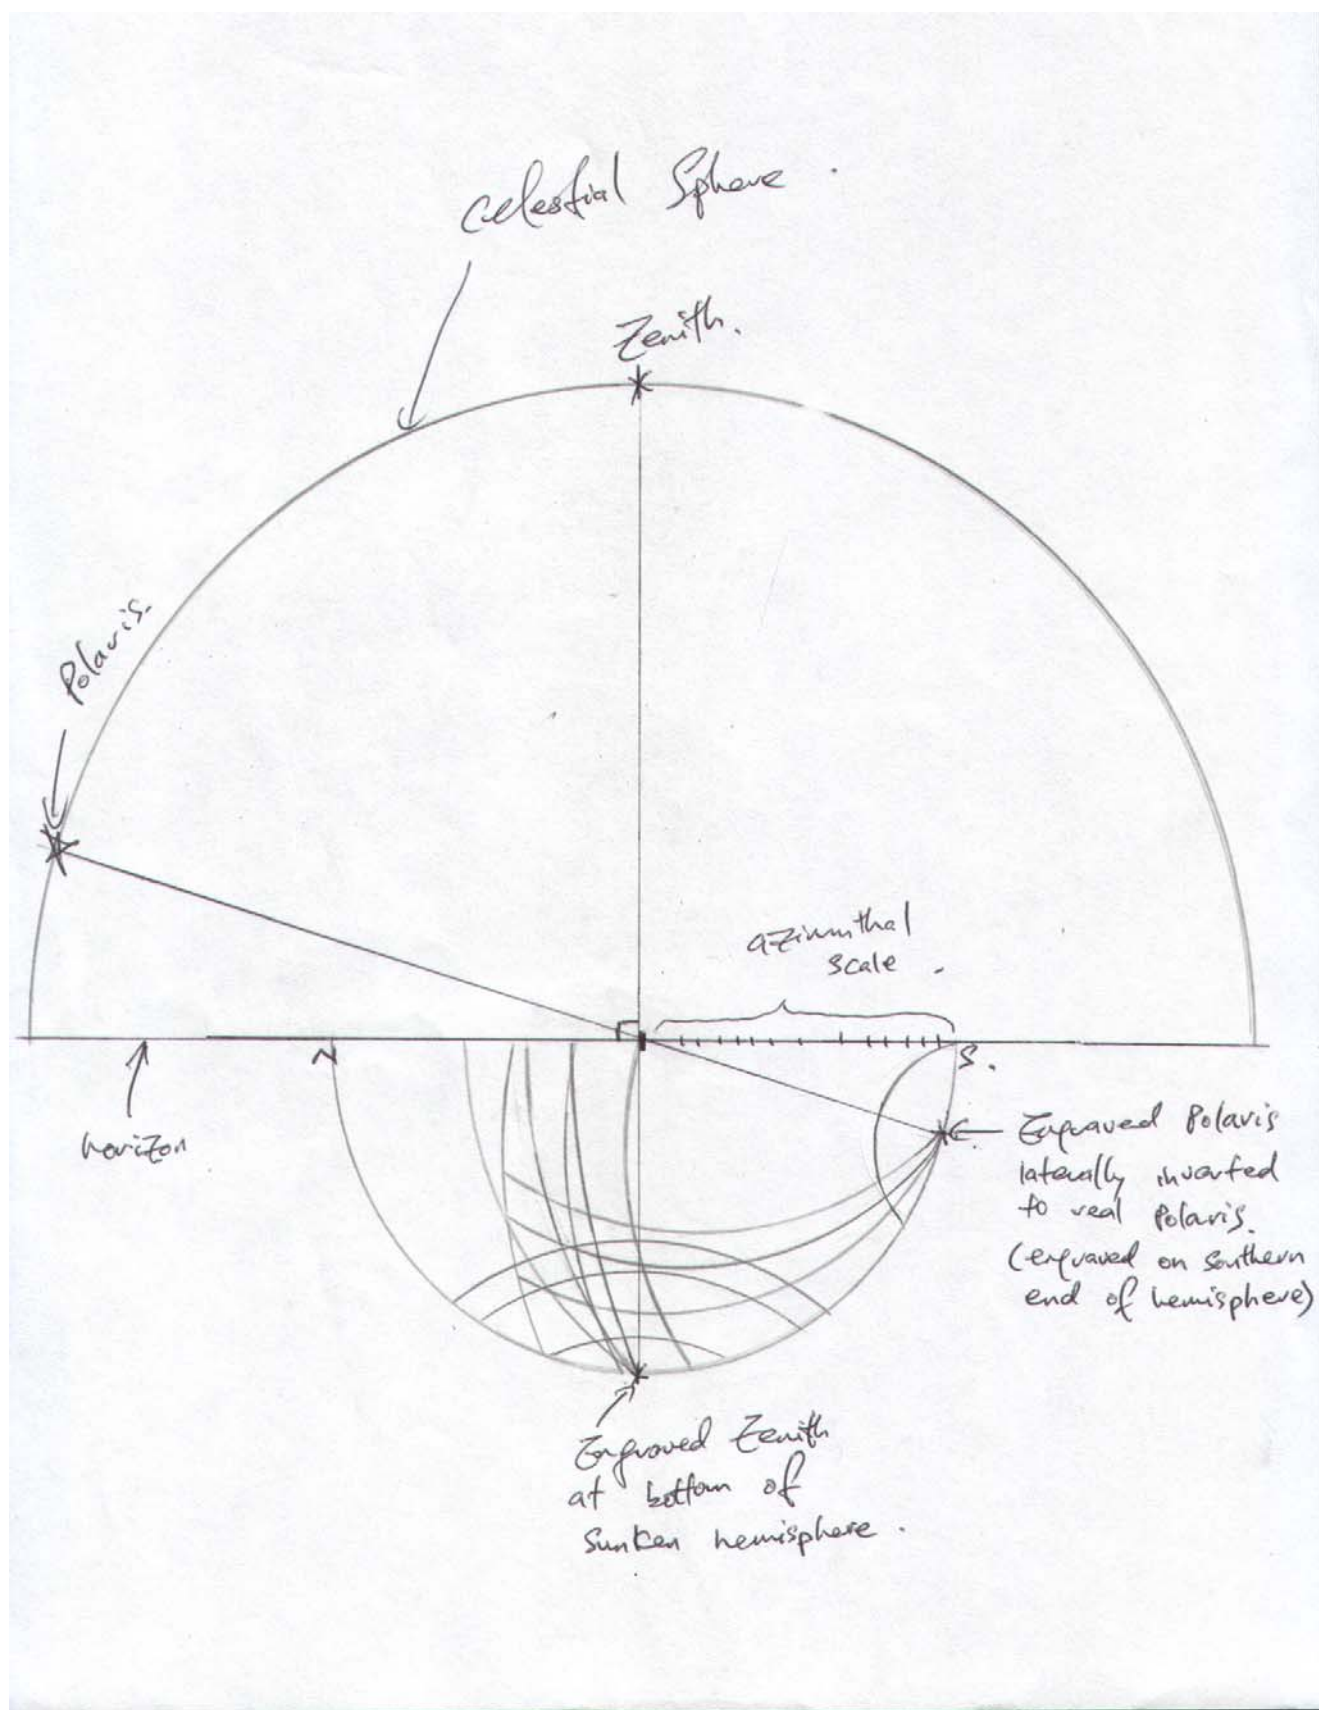 Celestial Sphere.
Zenith.
Polaris.
azimuthal
scale.
N
S.
horizon
Engraved Polaris
laterally inverted
to real Polaris.
(engraved on southern
end of hemisphere)
Engraved Zenith
at bottom of
Sunken hemisphere.